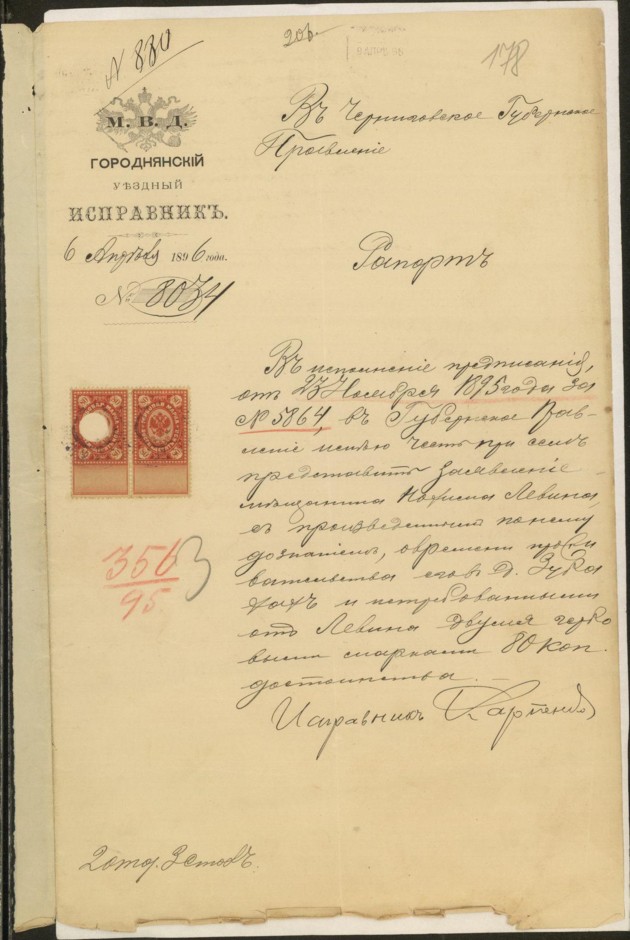 № 880
178
М. В. Д.
ГОРОДНЯНСКІЙ
УѢЗДНЫЙ
ИСПРАВНИКЪ.
6 Апрѣля 1896 года.
№ 8034
Въ Черниговское Губернское
Правленіе
Рапортъ
Въ исполненіе предписанія,
отъ 23 Ноября 1895 года за
№ 5864, въ Губернское Прав-
леніе имѣю честь при семъ
представить заявленіе
мѣщанина Нохима Левина,
съ произведеннымъ по нему
дознаніемъ, о времени прожи
вательства его въ д. Зуба
хахъ и истребованными
отъ Левина двумя гербо
выми марками 80 коп.
достоинства.
Исправникъ
356
95
2 отд. 3 столъ